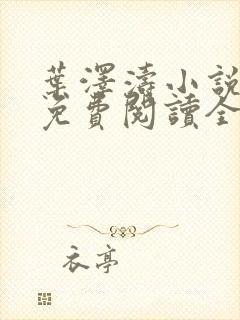 葉澤濤小說
免費閱讀全
衣亭